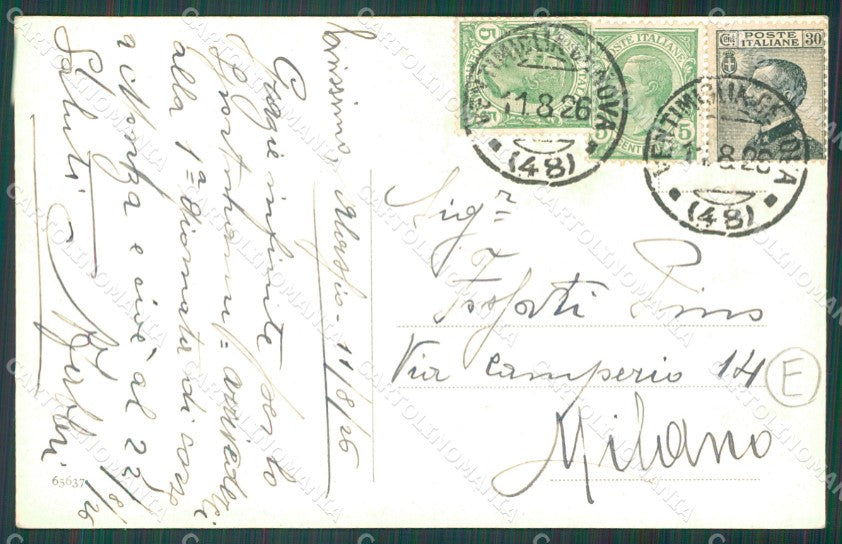 Carissimo, Alassio - 11/8/26
Grazie infinite per lo
alla 1ª giornata di corse
a Monza e cioè al 22/8/26
Saluti
65637
VENTIMIGLIA-GENOVA
11.8.26
(48)
VENTIMIGLIA-GENOVA
11.8.26
(48)
5
POSTE ITALIANE
5
CENT
POSTE
ITALIANE
30
Sigr
Pino
Via Camperio 14
Milano
E
CARTOLINOMANIA